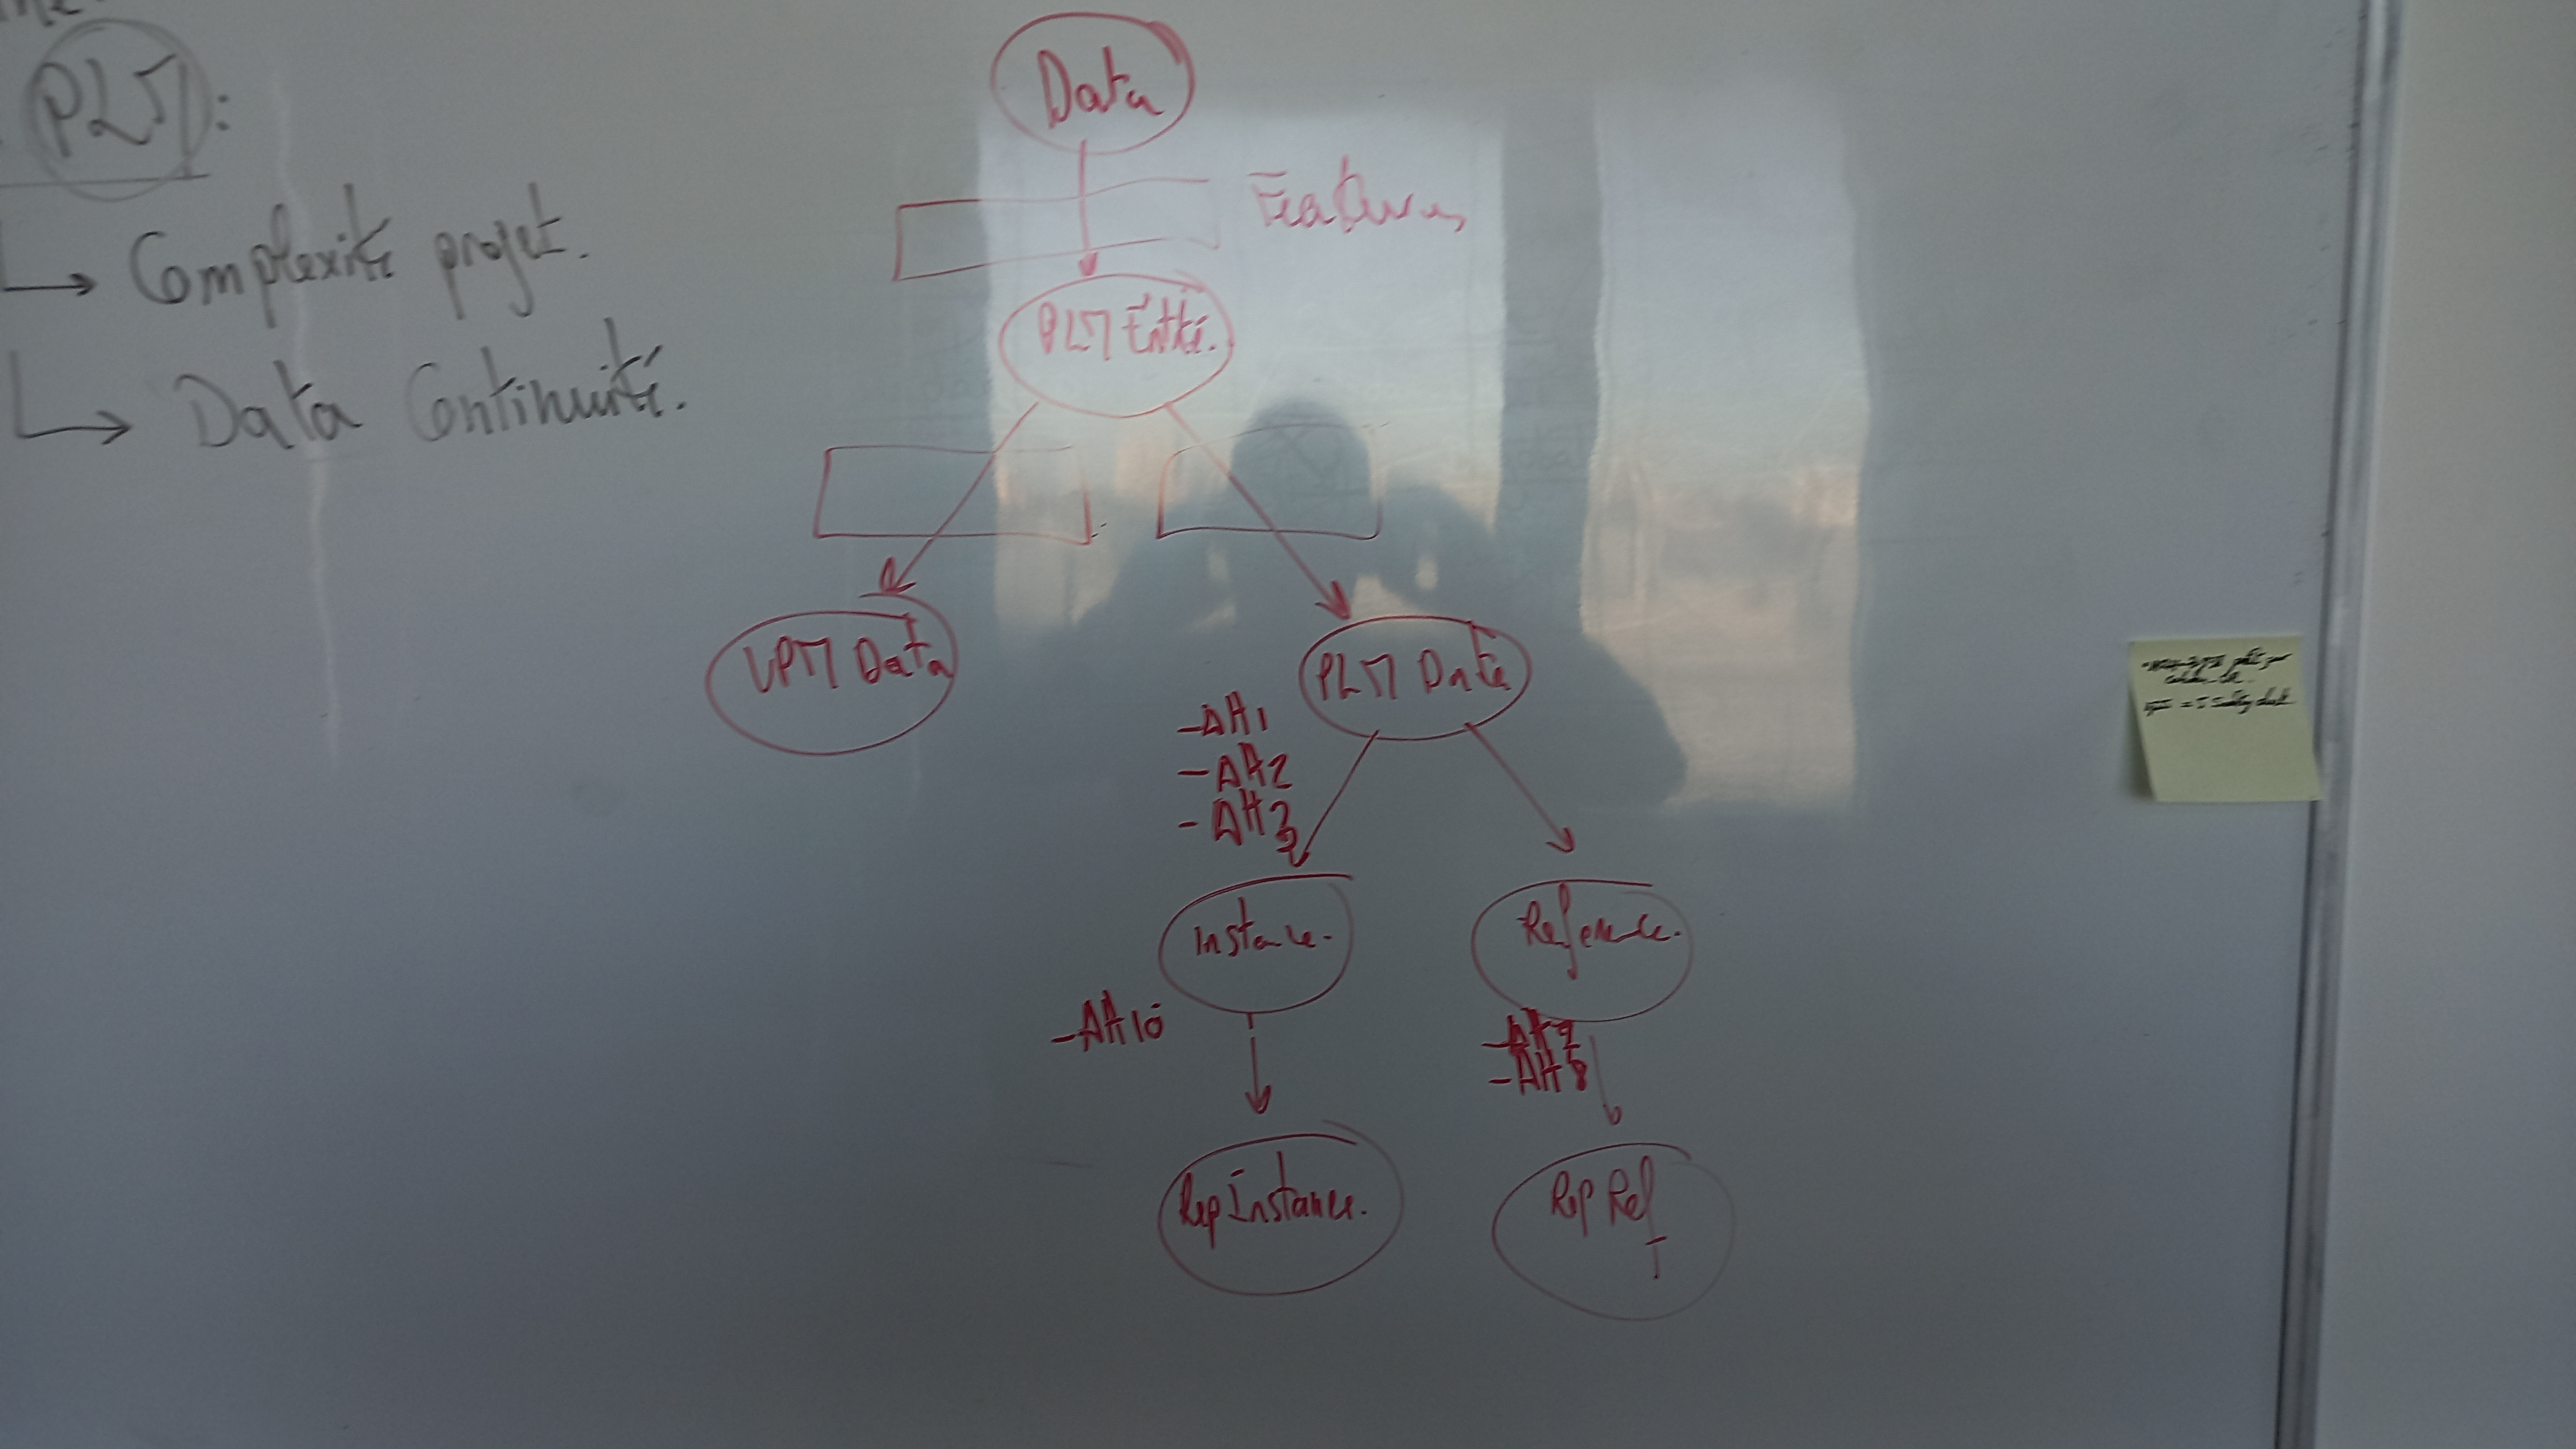 PLM:
↳ Complexité projet.
↳ Data Continuité.
Data
Features
PLM Entité.
VPM Data
PLM Data
- Att1
- Att2
- Att3
Instance.
Reference.
- Att10
- Att7
- Att8
Rep Instance.
Rep Ref